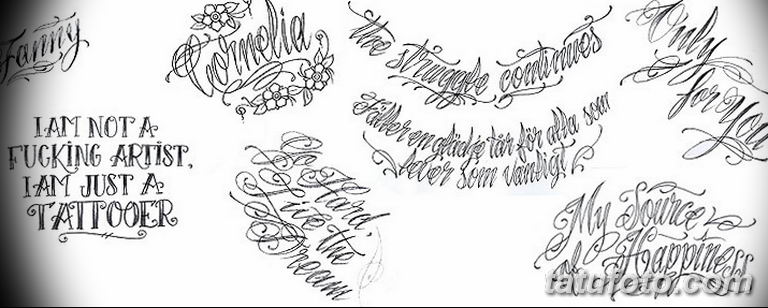 Fanny
Cornelia
the struggle continues
Fäller en glädje tår för alla som
lever som vanligt
Only
for you
I AM NOT A
FUCKING ARTIST,
I AM JUST A
TATTOOER
Hard,
Live the
Dream
My Source
of Happiness
tatufoto.com